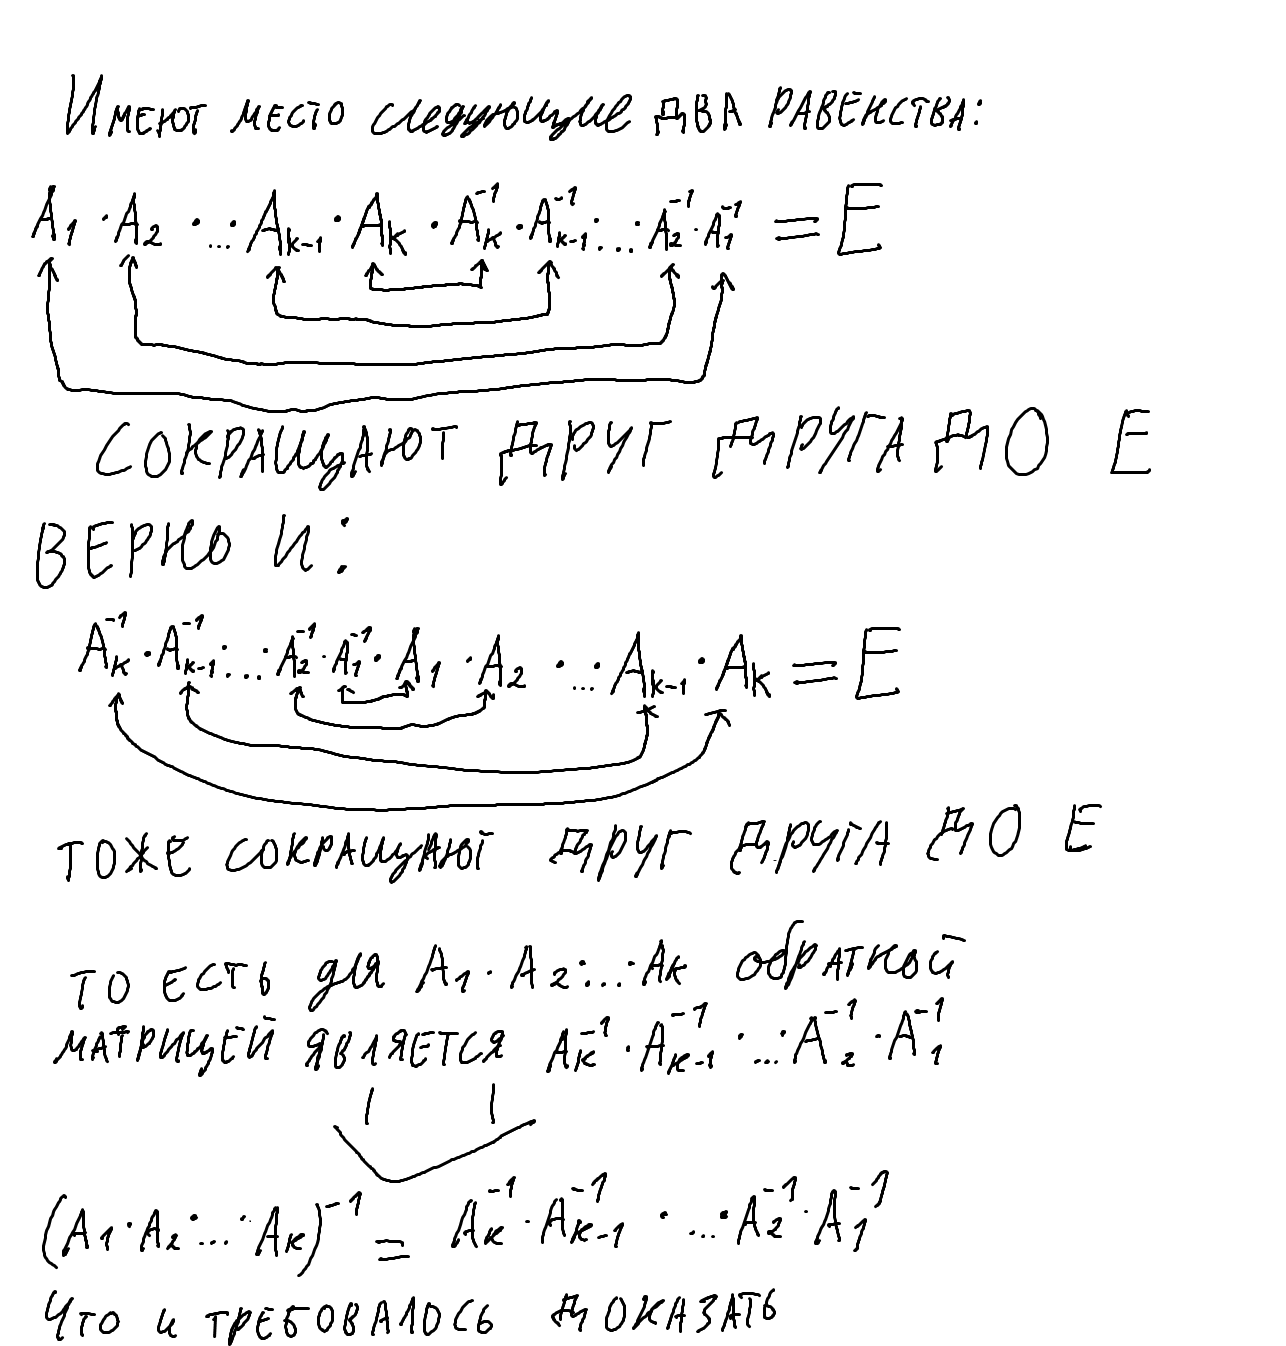 Имеют место следующие два равенства:
A₁ · A₂ · ... · Aₖ₋₁ · Aₖ · Aₖ⁻¹ · Aₖ₋₁⁻¹ · ... · A₂⁻¹ · A₁⁻¹ = E
СОКРАЩАЮТ ДРУГ ДРУГА ДО E
ВЕРНО И:
Aₖ⁻¹ · Aₖ₋₁⁻¹ · ... · A₂⁻¹ · A₁⁻¹ · A₁ · A₂ · ... · Aₖ₋₁ · Aₖ = E
ТОЖЕ СОКРАЩАЮТ ДРУГ ДРУГА ДО E
ТО ЕСТЬ для A₁ · A₂ · ... · Aₖ обратной
матрицей является Aₖ⁻¹ · Aₖ₋₁⁻¹ · ... · A₂⁻¹ · A₁⁻¹
(A₁ · A₂ · ... · Aₖ)⁻¹ = Aₖ⁻¹ · Aₖ₋₁⁻¹ · ... · A₂⁻¹ · A₁⁻¹
Что и требовалось доказать